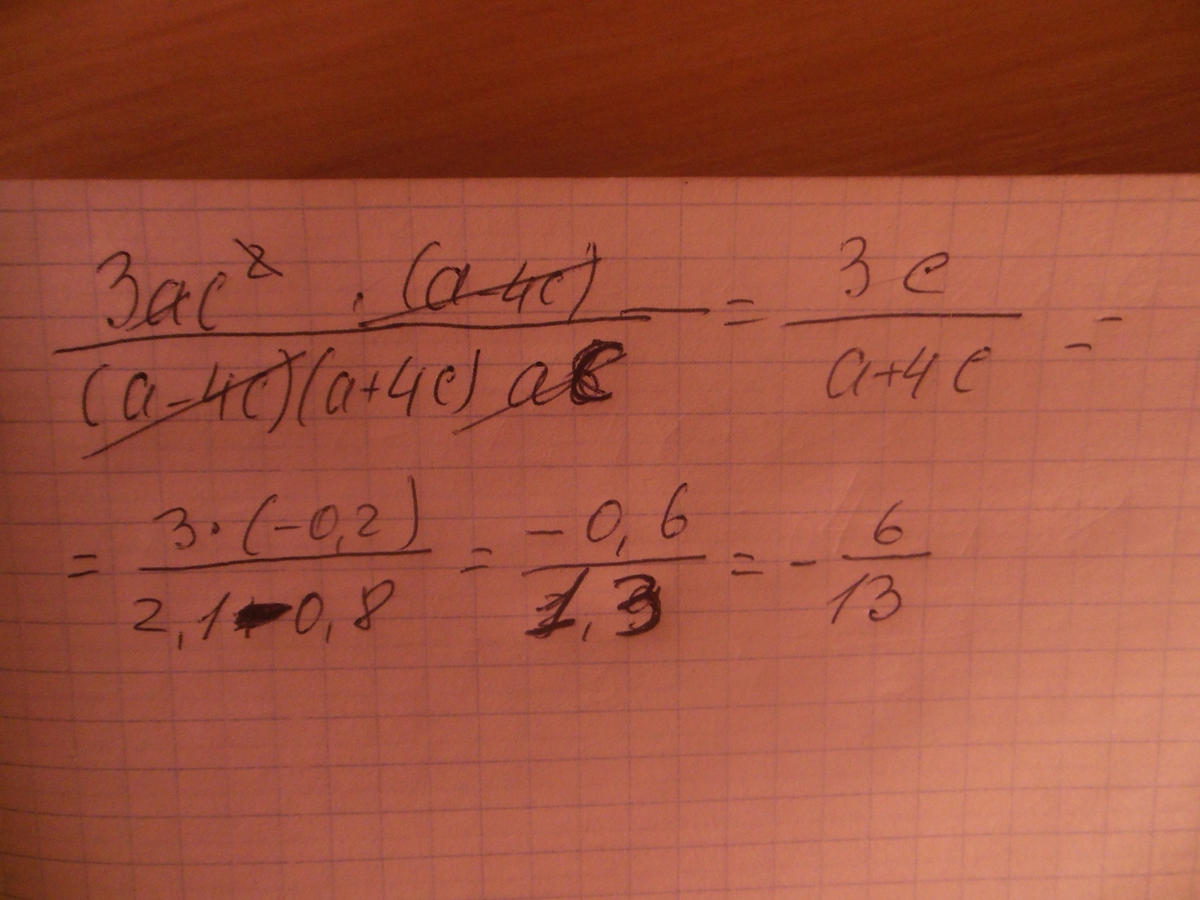 3ac² · (a-4c) / (a-4c)(a+4c) ac = 3c / a+4c =
= 3·(-0,2) / 2,1-0,8 = -0,6 / 1,3 = - 6 / 13